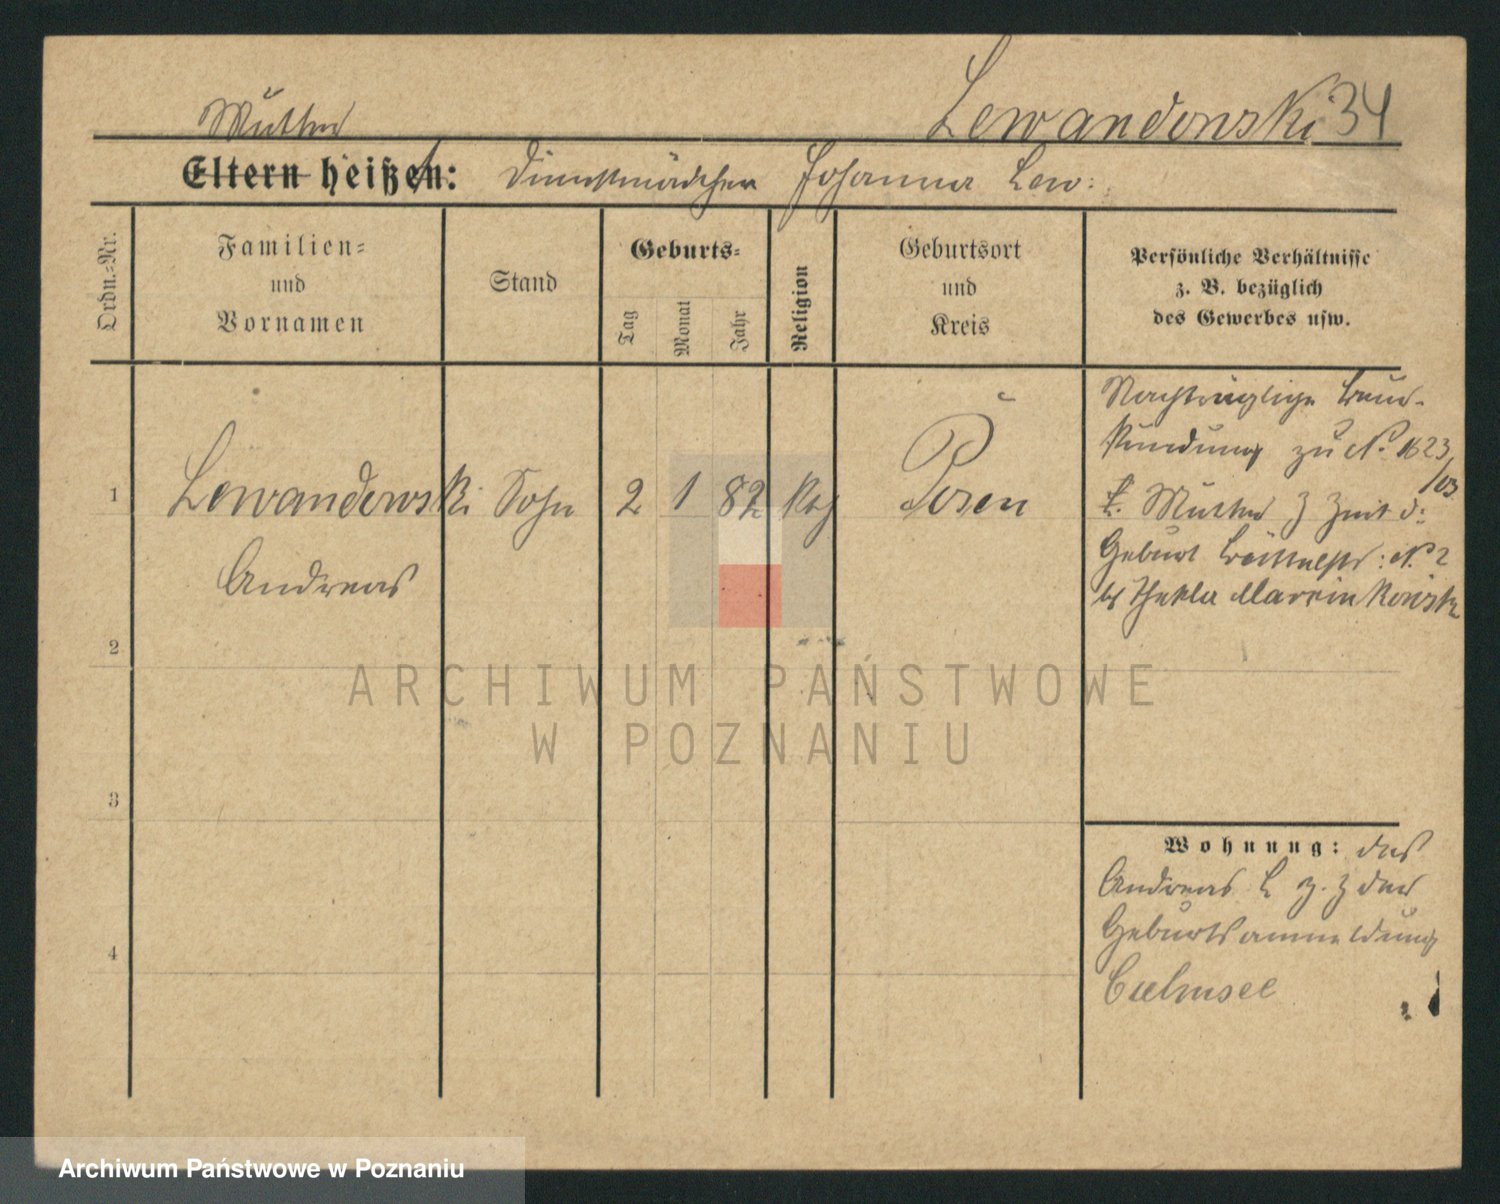 Lewandowski 34
Mutter
Eltern heißen: Dienstmädchen Johanna Lew:
Ordn.-Nr.
Familien-
und
Vornamen
Stand
Geburts-
Tag
Monat
Jahr
Religion
Geburtsort
und
Kreis
Persönliche Verhältnisse
z. B. bezüglich
des Gewerbes usw.
1
Lewandowski Sohn 2 1 82 Posen
Andreas
Nachträgliche Beur-
kundung zu No. 1623
/03
Mutter z Zeit d:
Geburt No 2
bei Thekla
2
3
4
Wohnung: des
Andreas L z. Z der
Geburtsanmeldung
Culmsee
ARCHIWUM PAŃSTWOWE
W POZNANIU
Archiwum Państwowe w Poznaniu